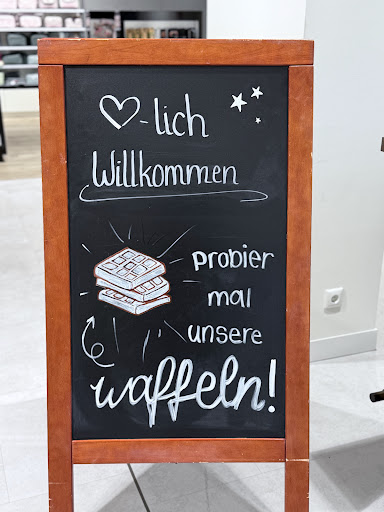 ♡-lich
Willkommen
probier
mal
unsere
waffeln!